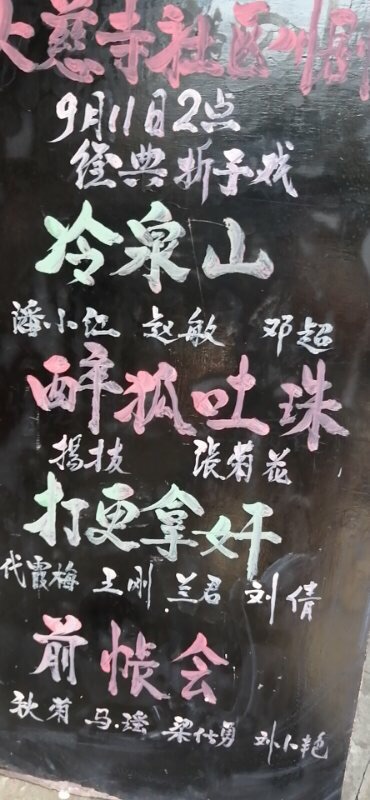 大慈寺社区川剧
9月11日2点
经典折子戏
冷泉山
潘小红 赵敏 邓超
醉狐吐珠
杨拔 张菊花
打更拿奸
代霞梅 王刚 兰君 刘倩
前帐会
秋菊 马瑶 梁仕勇 刘小艳